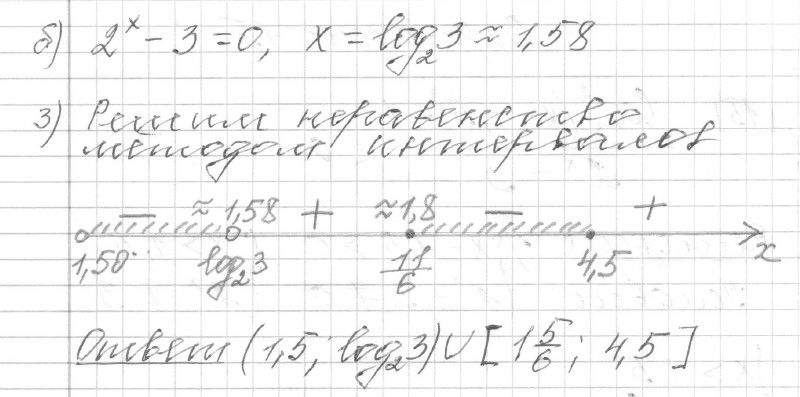 б) 2^x - 3 = 0, x = log₂3 ≈ 1,58
3) Решим неравенство
методом интервалов
− ≈1,58 + ≈1,8 − +
1,50 log₂3 11/6 4,5 x
Ответ (1,5; log₂3) ∪ [1 5/6; 4,5]